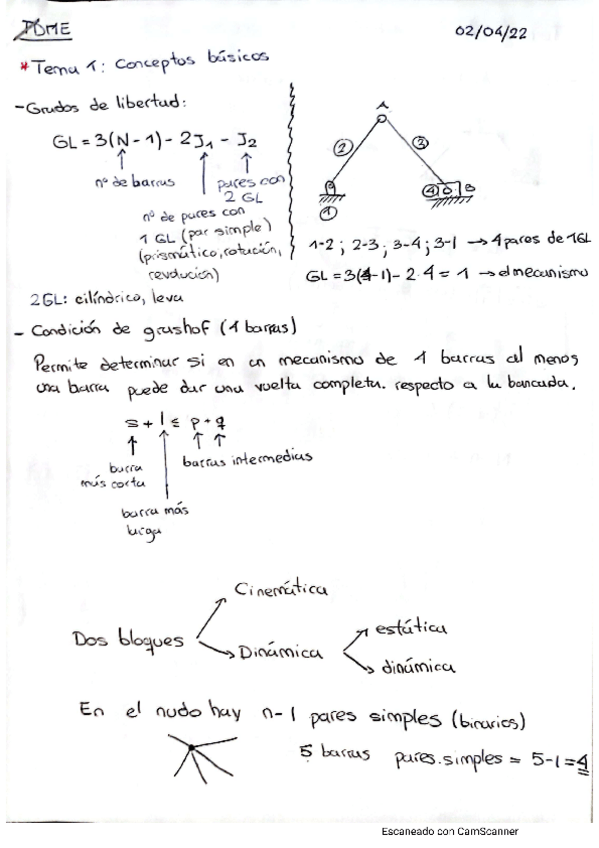 PDME
02/04/22
* Tema 1: Conceptos básicos
- Grados de libertad:
GL = 3(N - 1) - 2J1 - J2
nº de barras
pares con
2 GL
nº de pares con
1 GL (par simple)
(prismático, rotación,
revolución)
2GL: cilíndrico, leva
A
2
3
4
B
1
1-2 ; 2-3 ; 3-4 ; 3-1 → 4 pares de 1GL
GL = 3(4-1) - 2·4 = 1 → el mecanismo
- Condición de grashof (4 barras)
Permite determinar si en un mecanismo de 4 barras al menos
una barra puede dar una vuelta completa. respecto a la bancada.
s + l ≤ p + q
barra
más corta
barras intermedias
barra más
larga
Cinemática
Dos bloques
Dinámica
estática
dinámica
En el nudo hay n-1 pares simples (binarios)
5 barras pares.simples = 5-1=4
Escaneado con CamScanner